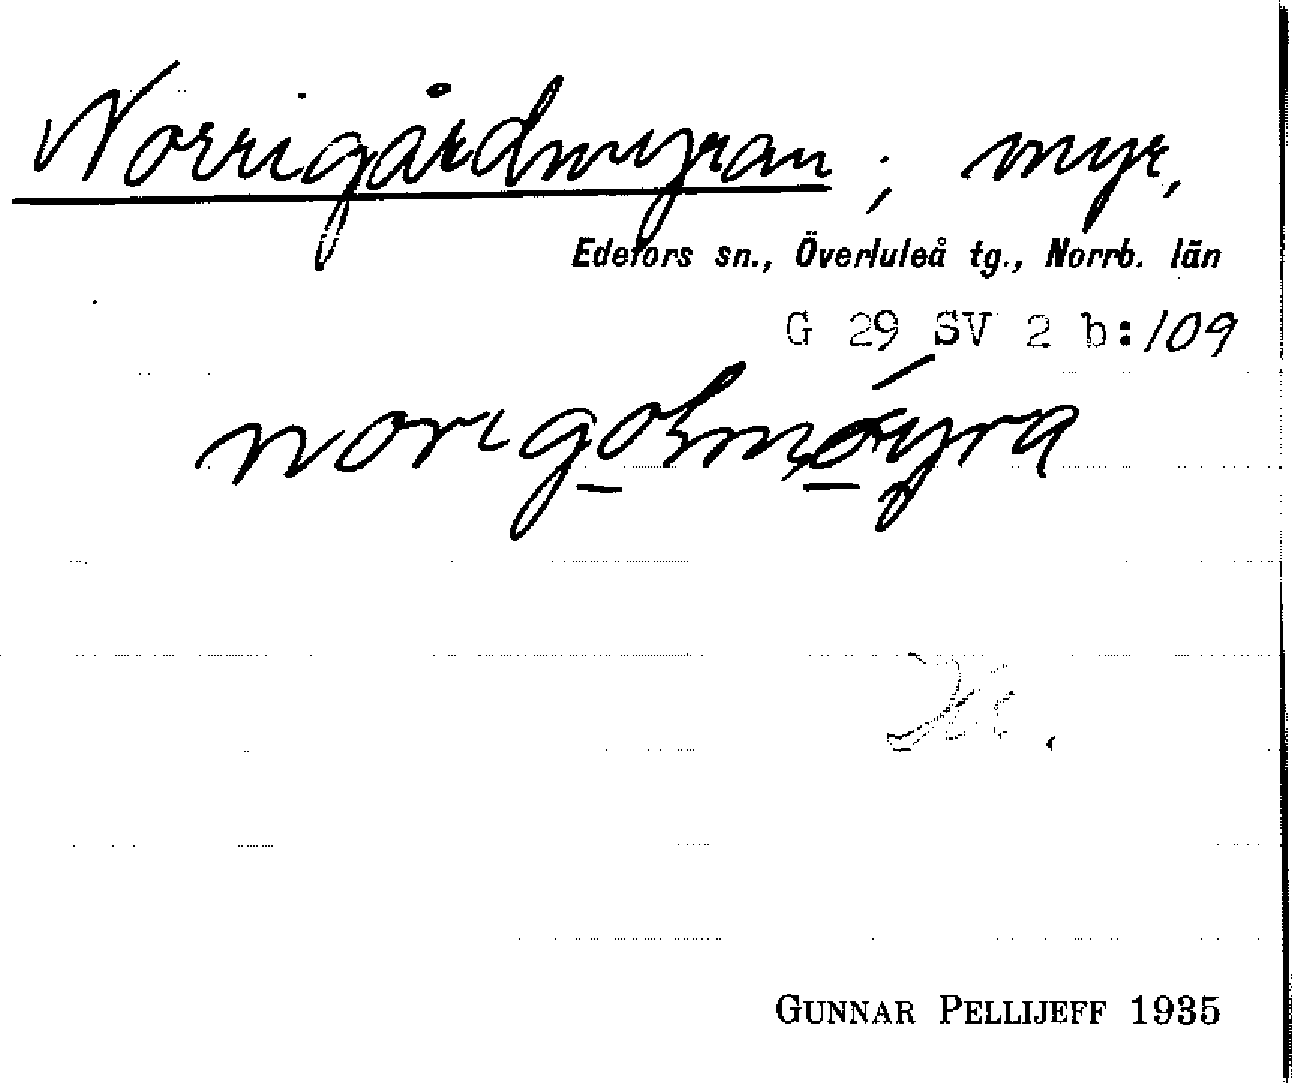 Norrigårdmyran ; myr,
Edefors sn., Överluleå tg., Norrb. län
G 29 SV 2 b:109
GUNNAR PELLIJEFF 1935